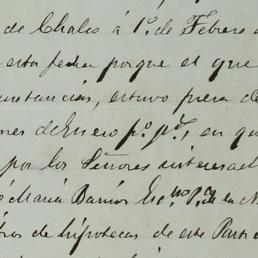 de Chalco á 1º de Febrero
esta fecha porque el que
unstancias, estuvo fuera de
nes de Enero pº. pdo, en qu
por los Señores interesad
é Maria Barrios Escno. Pco. de la N
bros de hipotecas de este Parti